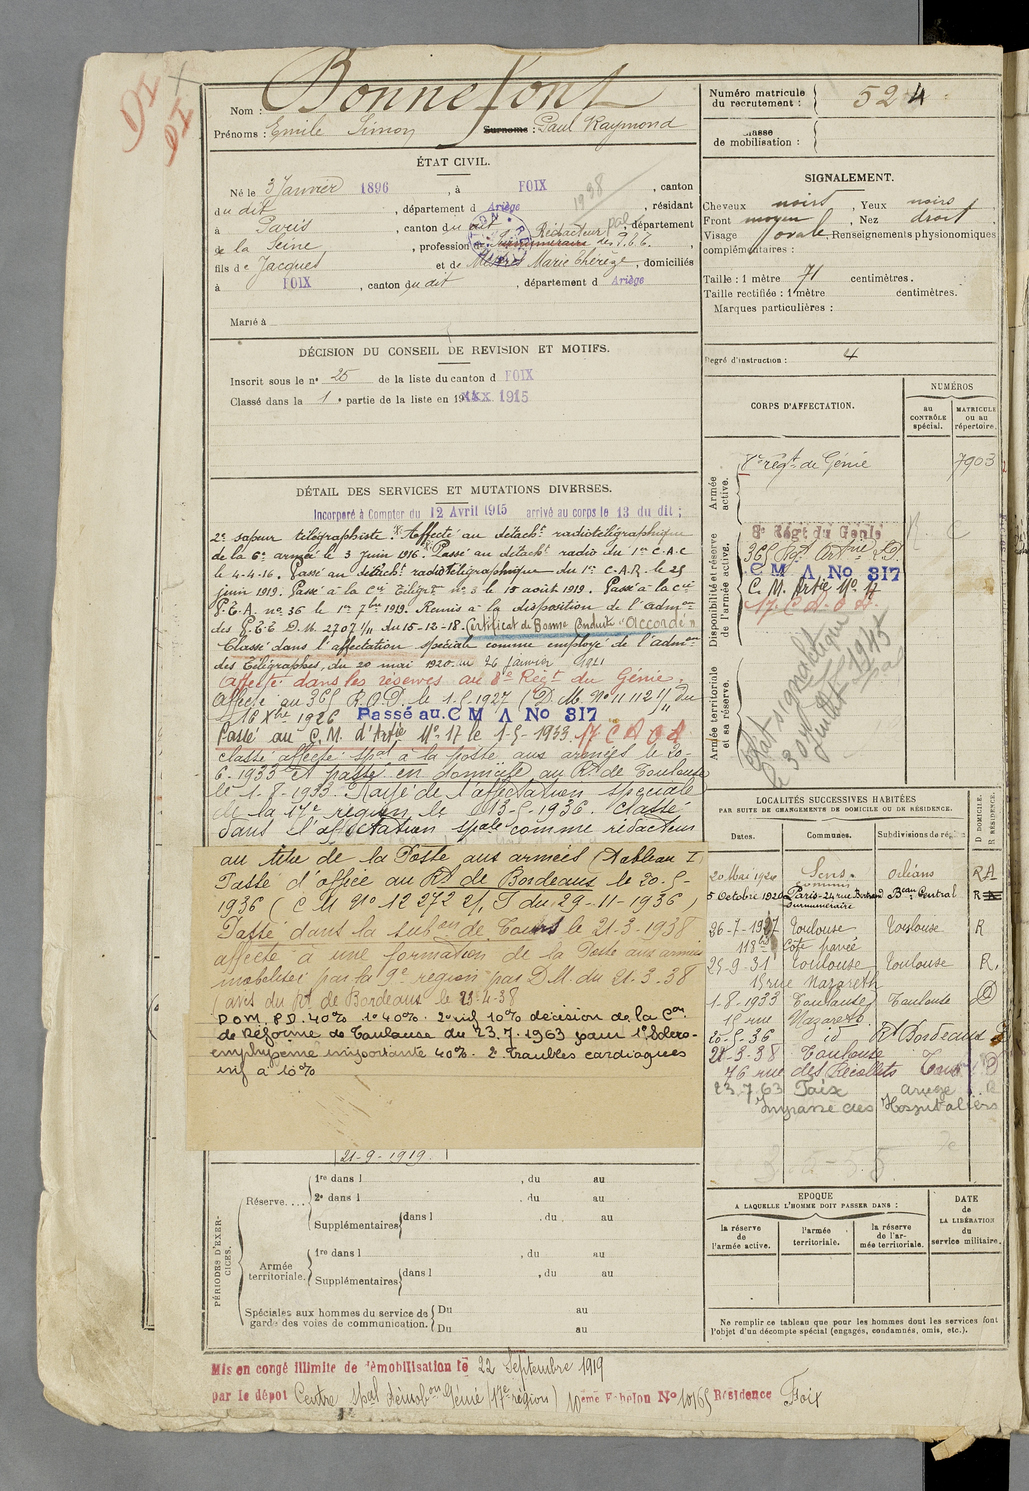 DI
DI
Nom : Bonnefont
Prénoms : Emile Simon Surnoms : Paul Raymond
ÉTAT CIVIL.
Né le 3 Janvier 1896, à FOIX, canton
du dit, département d Ariège, résidant
à Paris, canton du dit, département
1938
Rédacteur pal
de la Seine, profession de surnuméraire des P.T.T.
fils de Jacques et de Mestres Marie Thérèze, domiciliés
à FOIX, canton du dit, département d Ariège
Marié à
DÉCISION DU CONSEIL DE REVISION ET MOTIFS.
Inscrit sous le n° 25 de la liste du canton d FOIX
Classé dans la 1e partie de la liste en 19 1915
DÉTAIL DES SERVICES ET MUTATIONS DIVERSES.
Incorporé à Compter du 12 Avril 1915 arrivé au corps le 13 du dit ;
2e sapeur télégraphiste. Affecté au détacht radiotélégraphique
de la 6e armée le 3 juin 1916. Passé au détacht radio du 1er C.A.C
le 4-4-16. Passé au détacht radiotélégraphique du 1er C.A.R. le 25
juin 1919. Passé à la Cie Télégr n° 5 le 15 août 1919. Passé à la cie
T.E.A. n° 36 le 1er 7bre 1919. Remis à la disposition de l'admon
des P.T.T D.M. 2707 1/11 du 15-12-18. Certificat de Bonne Conduite "Accordé"
Classé dans l'affectation spéciale comme employé de l'admon
des Télégraphes, du 20 mai 1920 au 26 janvier 1921
Affecté dans les réserves au 8e Régt du Génie.
Affecté au 36e R.O.D. le 1-5-1927 (D.M. N° 11112 1/11 du
16 Xbre 1926 Passé au C M A No 317
Passé au C.M. d'Artie N° 17 le 1-5-1933. 17 C A O A
classé affecté spal à la poste aux armées le 20-
6-1933 et passe en domicile au Rt de Toulouse
le 1-8-1933. Rayé de l'affectation spéciale
de la 17e région le 13-5-1936. Classé
dans l'affectation spale comme rédacteur
au titre de la Poste aux armées (Tableau I)
Passé d'office au Rt de Bordeaux le 20-5-
1936 (C M N° 12 272 2/1 T du 29-11-1936)
Passé dans la subon de Tours le 21-3-1938
affecté à une formation de la Poste aux armées
mobilisée par la 9e région par D.M. du 21-3-38
(avis du Rt de Bordeaux le 23-4-38
DOM. P.D. 40% 1° 40% 2° inf 10% décision de la Con
de Réforme de Toulouse du 23.7.1963 pour 1° Scléro-
emphysème importante 40%. 2° troubles cardiaques
inf à 10%
21-9-1919.
PÉRIODES D'EXERCICES.
Réserve.... 1re dans l , du au
2e dans l , du au
Supplémentaires dans l , du au
Armée territoriale. 1re dans l , du au
Supplémentaires dans l , du au
Spéciales aux hommes du service de garde des voies de communication. Du au
Du au
Mis en congé illimité de démobilisation le 22 Septembre 1919
par le dépôt Centre spal démobon Génie (17e région) 10ème Echelon No 10165 Résidence Foix
Numéro matricule du recrutement : 524
Classe de mobilisation :
SIGNALEMENT.
Cheveux noirs, Yeux noirs
Front moyen, Nez droit
Visage ovale, Renseignements physionomiques
complémentaires :
Taille : 1 mètre 71 centimètres.
Taille rectifiée : 1 mètre centimètres.
Marques particulières :
Degré d'instruction : 4
CORPS D'AFFECTATION.
NUMÉROS
au CONTRÔLE spécial.
MATRICULE ou au répertoire.
Armée active.
8e régt de Génie 7903
Disponibilité et réserve de l'armée active.
8e Régt du Génie
C M A No 317
C. M. Artie N° 17
17 C A O A
Armée territoriale et sa réserve.
Etat signalétique
le 30 Juillet 1945
LOCALITÉS SUCCESSIVES HABITÉES
PAR SUITE DE CHANGEMENTS DE DOMICILE OU DE RÉSIDENCE.
Dates. Communes. Subdivisions de région D DOMICILE. R RÉSIDENCE.
20 Mai 1920 Sens Orléans RA
commis
5 Octobre 1920 Paris-24 rue Bertrand Beau Central R
surnuméraire
26-7-1927 Toulouse Toulouse R
118 bis Côte pavée
25-9-31 Toulouse Toulouse R.
15 rue Nazareth
1-8-1933 Toulouse Toulouse D
15 rue Nazareth
20-5-36 id Rt Bordeaux
21-3-38 Toulouse Tours D
76 rue des Récollets
23.7.63 Foix Ariège R
Impasse des Hospitaliers
EPOQUE
A LAQUELLE L'HOMME DOIT PASSER DANS :
la réserve de l'armée active.
l'armée territoriale.
la réserve de l'armée territoriale.
DATE de LA LIBÉRATION du service militaire.
Ne remplir ce tableau que pour les hommes dont les services font
l'objet d'un décompte spécial (engagés, condamnés, omis, etc.).